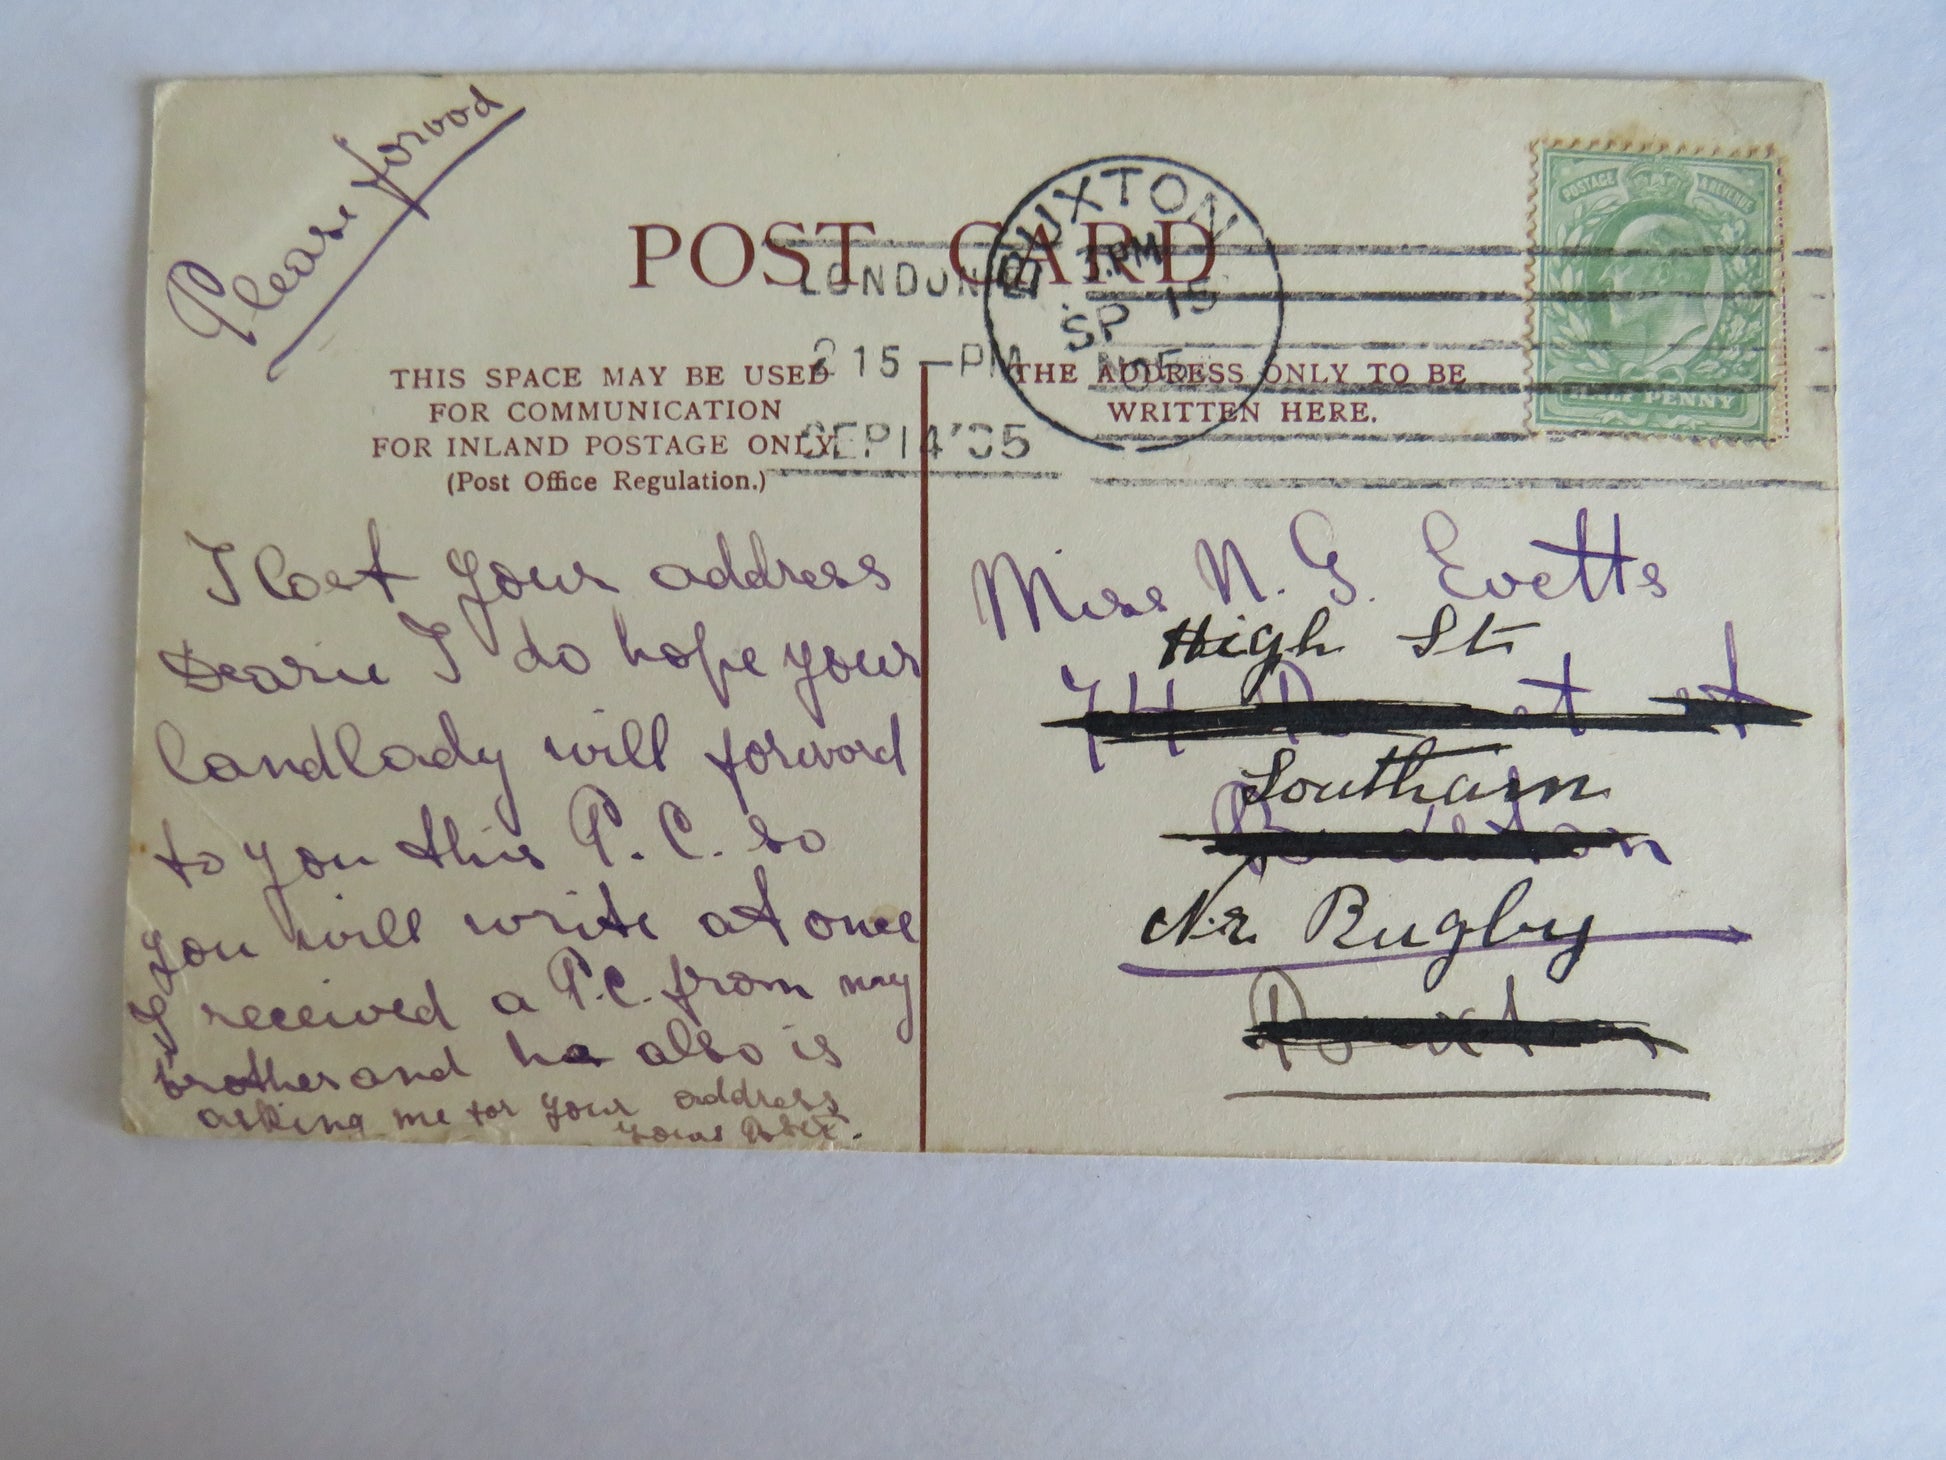 Please forwod
POST CARD
LONDON
2 15 - PM
SEP 14 '05
BUXTON
PM
SP 15
POSTAGE & REVENUE
HALF PENNY
THIS SPACE MAY BE USED
FOR COMMUNICATION
FOR INLAND POSTAGE ONLY.
(Post Office Regulation.)
THE ADDRESS ONLY TO BE
WRITTEN HERE.
I lost your address
Dearie I do hope your
landlady will forword
to you this P.C. so
you will write at once
I received a P.C. from my
brother and he also is
asking me for your address
yours
Miss N. G. Evetts
High St
74
Southam
Nr. Rugby
Buxton